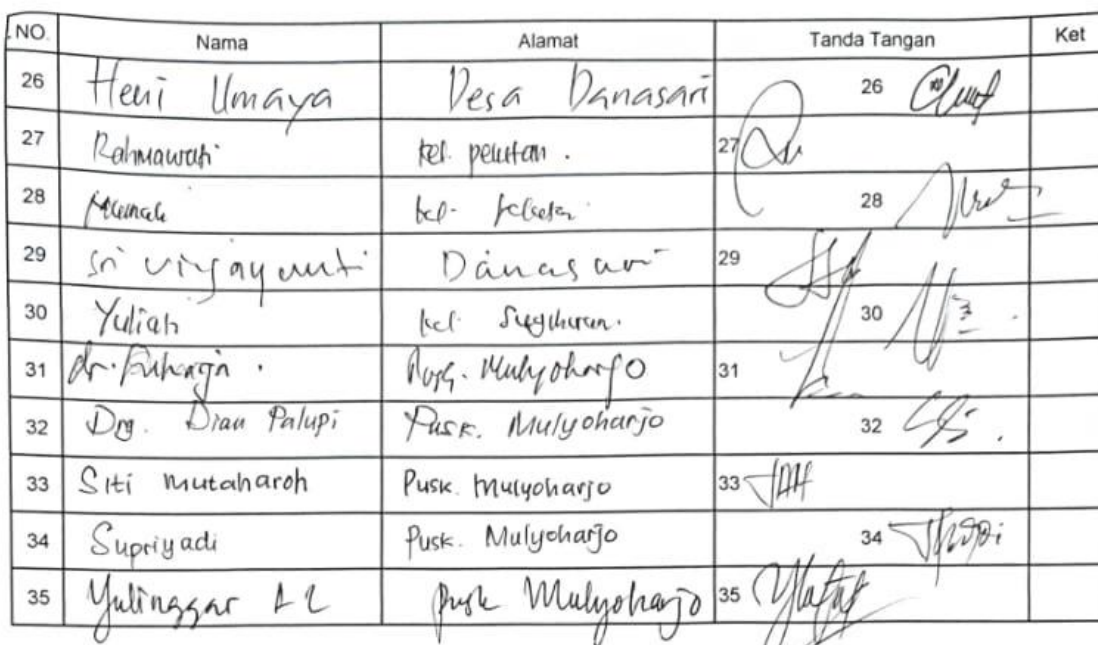 NO. Nama Alamat Tanda Tangan Ket
26 Heni Umaya Desa Danasari 26
27 Rahmawati kel. pelutan. 27
28 kel. 28
29 Sri Danasari 29
30 Yuliah kel. Sugihwaras. 30
31 dr. Puskes. Mulyoharjo 31
32 Drg. Dian Palupi Pusk. Mulyoharjo 32
33 Siti mutaharoh Pusk. Mulyoharjo 33
34 Supriyadi Pusk. Mulyoharjo 34
35 Yulinggar Pusk Mulyoharjo 35